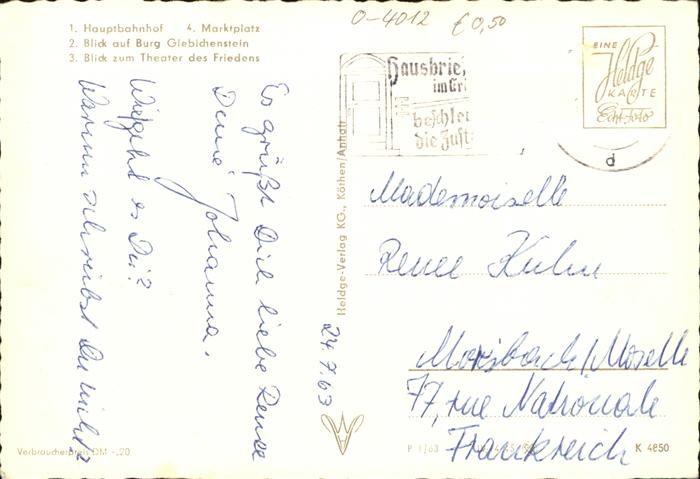 O-4012 €0,50
1. Hauptbahnhof 4. Marktplatz
2. Blick auf Burg Giebichenstein
3. Blick zum Theater des Friedens
EINE
Heldge
KARTE
Echt-Foto
Hausbrie
im
beschle
die Zust
d
Es grüßt Dich liebe Renee
Deine Johanna.
Wie geht es Dir?
Warum schreibst Du nicht?
24.7.63
Heldge-Verlag KG., Köthen/Anhalt
Mademoiselle
Renee Kuhn
Morsbach/Moselle
77, rue Nationale
Frankreich
Verbraucherpreis DM -,20
P 1/63
K 4850